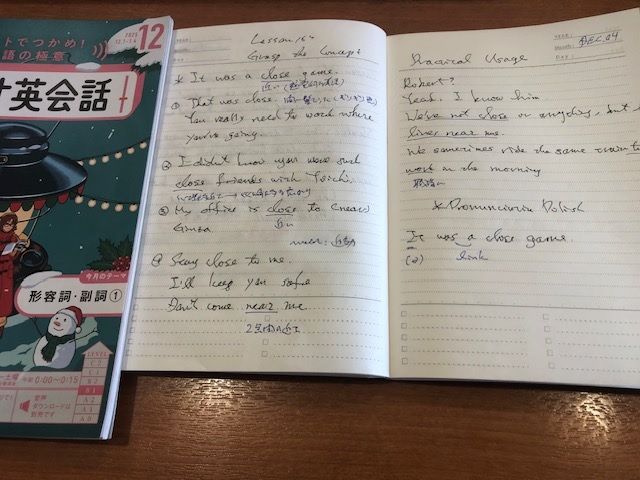 トでつかめ!
語の極意
2023
12
英会話
今月のテーマ
形容詞・副詞①
LEVEL
C 2
C 1
B 2
B 1
A 2
A 1
A 0
午前 0:00〜0:15
音声
ダウンロードは
別売です
Lesson
Grasp the Concept
* It was a close game.
近い
① That was close.
You really need to watch where
you're going.
② I didn't know you were such
close friends with
③ My office is close to (near)
Ginza
近い
④ Stay close to me.
I'll keep you safe
Don't come near me
YEAR :
Month : DEC. 04
DAY :
Practical Usage
Robert?
Yeah. I know him.
We're not close or anything, but
lives near me.
We sometimes ride the same train to
work in the morning
* Pronunciation Polish
It was a close game.
link